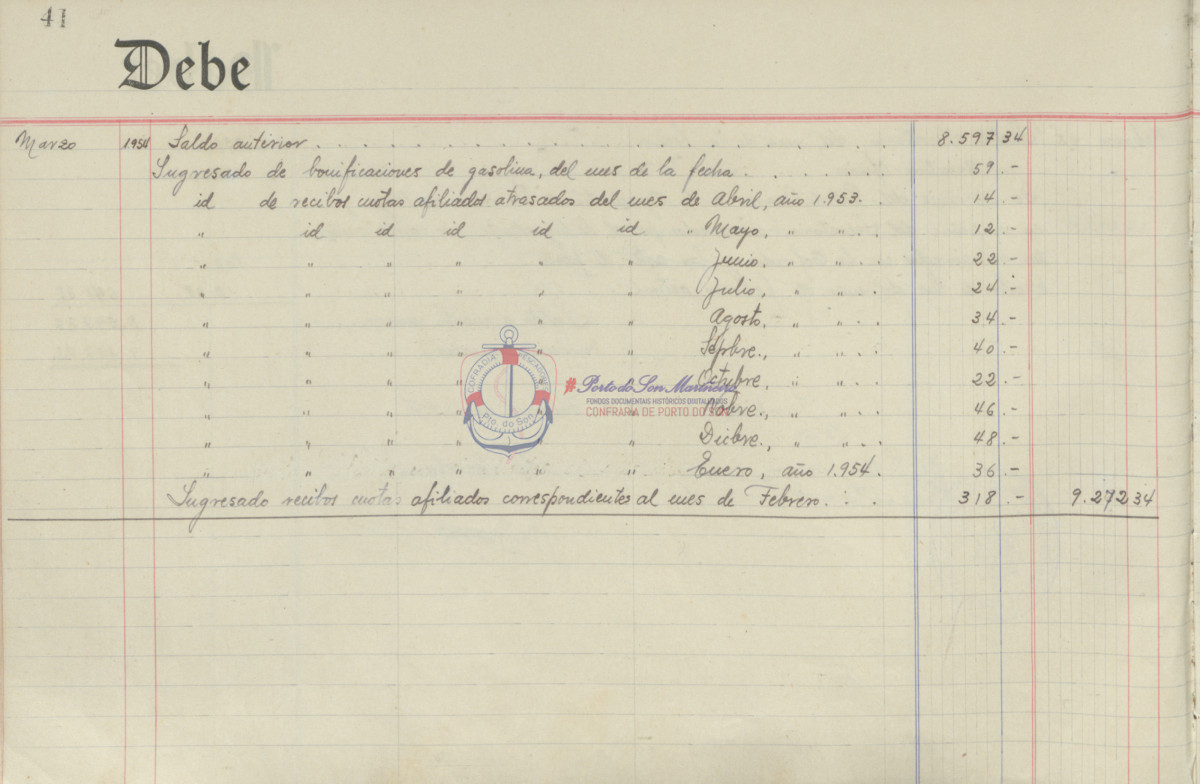 41
Debe
Marzo 1954 Saldo anterior . . . . . . . . . . . . . . . . . . . 8.597 34
Ingresado de bonificaciones de gasolina, del mes de la fecha . . . . . . . 59 .-
id de recibos cuotas afiliados atrasados del mes de Abril, año 1.953. . 14 .-
" id id id id id " Mayo, " " . . 12 .-
" " " " " " Junio, " " . . . 22 .-
" " " " " " Julio, " " . . . 24 .-
" " " " " " Agosto, " " . . . 34 .-
" " " " " " Sepbre., " " . . . 40 .-
" " " " " " Octubre, " " . . . 22 .-
" " " " " " Nobre., " " . . . 46 .-
" " " " " " Dicbre., " " . . . 48 .-
" " " " " " Enero, año 1.954. 36 .-
Ingresado recibos cuotas afiliados correspondientes al mes de Febrero. . . . 318 .- 9.272 34
COFRADIA PESCADORES
Pto. do Son
#Porto do Son Mariñeira
FONDOS DOCUMENTAIS HISTÓRICOS DIXITALIZADOS
CONFRARIA DE PORTO DO SON